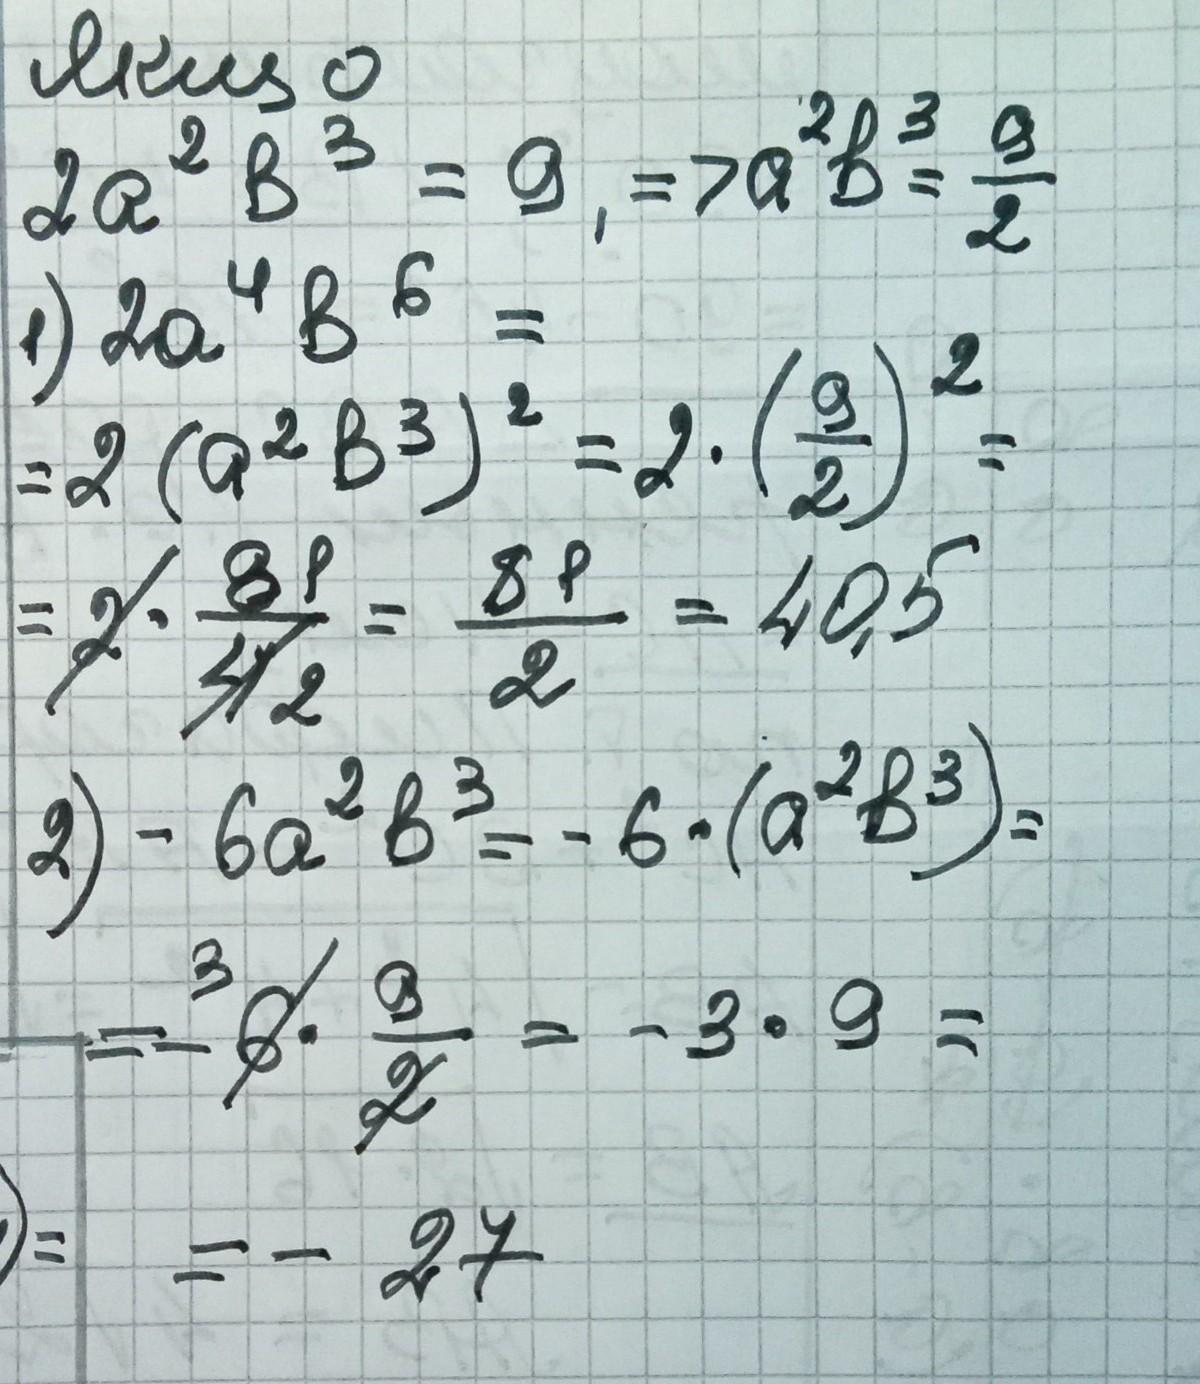 Якщо
2a² b³ = 9, => a²b³ = 9/2
1) 2a⁴ b⁶ =
= 2 (a² b³)² = 2 · (9/2)² =
= 2 · 81/4 2 = 81/2 = 40,5
2) - 6a² b³ = - 6 · (a² b³) =
= - ³6 · 9/2 = - 3 · 9 =
) = = - 27